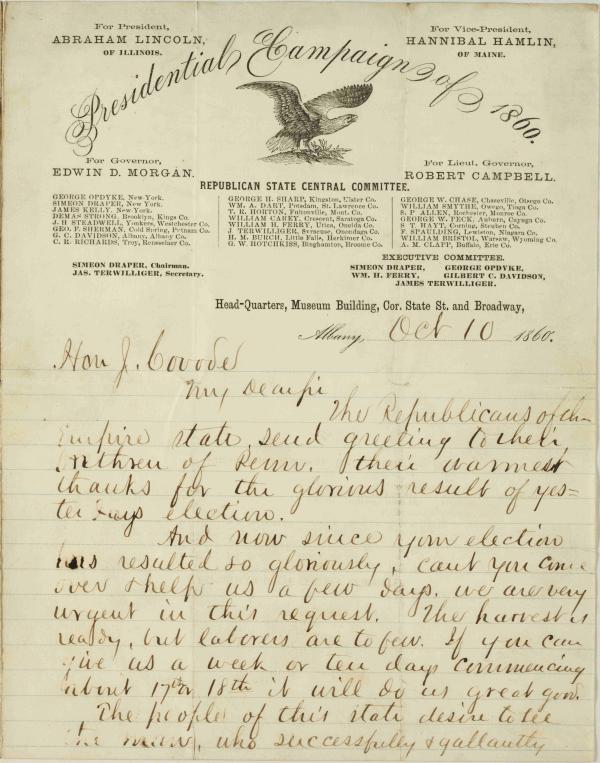 For President,
ABRAHAM LINCOLN,
OF ILLINOIS.
For Vice-President,
HANNIBAL HAMLIN,
OF MAINE.
Presidential Campaign of 1860.
For Governor,
EDWIN D. MORGAN.
For Lieut. Governor,
ROBERT CAMPBELL.
REPUBLICAN STATE CENTRAL COMMITTEE.
GEORGE OPDYKE, New-York.
SIMEON DRAPER, New York.
JAMES KELLY, New York.
DEMAS STRONG, Brooklyn, Kings Co.
J. H. STEADWELL, Yonkers, Westchester Co.
GEO. F. SHERMAN, Cold Spring, Putnam Co.
G. C. DAVIDSON, Albany, Albany Co.
C. R. RICHARDS, Troy, Rensselaer Co.
GEORGE H. SHARP, Kingston, Ulster Co.
WM. A. DART, Potsdam, St. Lawrence Co.
T. R. HORTON, Fultonville, Mont. Co.
WILLIAM CAREY, Crescent, Saratoga Co.
WILLIAM H. FERRY, Utica, Oneida Co.
J. TERWILLIGER, Syracuse, Onondaga Co.
H. M. BURCH, Little Falls, Herkimer Co.
G. W. HOTCHKISS, Binghamton, Broome Co.
GEORGE W. CHASE, Chaseville, Otsego Co.
WILLIAM SMYTHE, Owego, Tioga Co.
S. P. ALLEN, Rochester, Monroe Co.
GEORGE W. PECK, Auburn, Cayuga Co.
S. T. HAYT, Corning, Steuben Co.
T. SPAULDING, Lewiston, Niagara Co.
WILLIAM BRISTOL, Warsaw, Wyoming Co.
A. M. CLAPP, Buffalo, Erie Co.
SIMEON DRAPER, Chairman.
JAS. TERWILLIGER, Secretary.
EXECUTIVE COMMITTEE.
SIMEON DRAPER, GEORGE OPDYKE,
WM. H. FERRY, GILBERT C. DAVIDSON,
JAMES TERWILLIGER.
Head-Quarters, Museum Building, Cor. State St. and Broadway,
Albany, Oct 10 1860.
Hon J. Covode
My Dear
The Republicans of the
Empire state, send greeting to their
brethren of Penn. their warmest
thanks for the glorious result of yes=
terdays election.
And now since your election
has resulted so gloriously, cant you come
over & help us a few days. we are very
urgent in this request. The harvest is
ready, but laborers are to few. If you can
give us a week or ten days commencing
about 17th or 18th it will do us great good.
The people of this state desire to see
the man, who successfully & gallantly